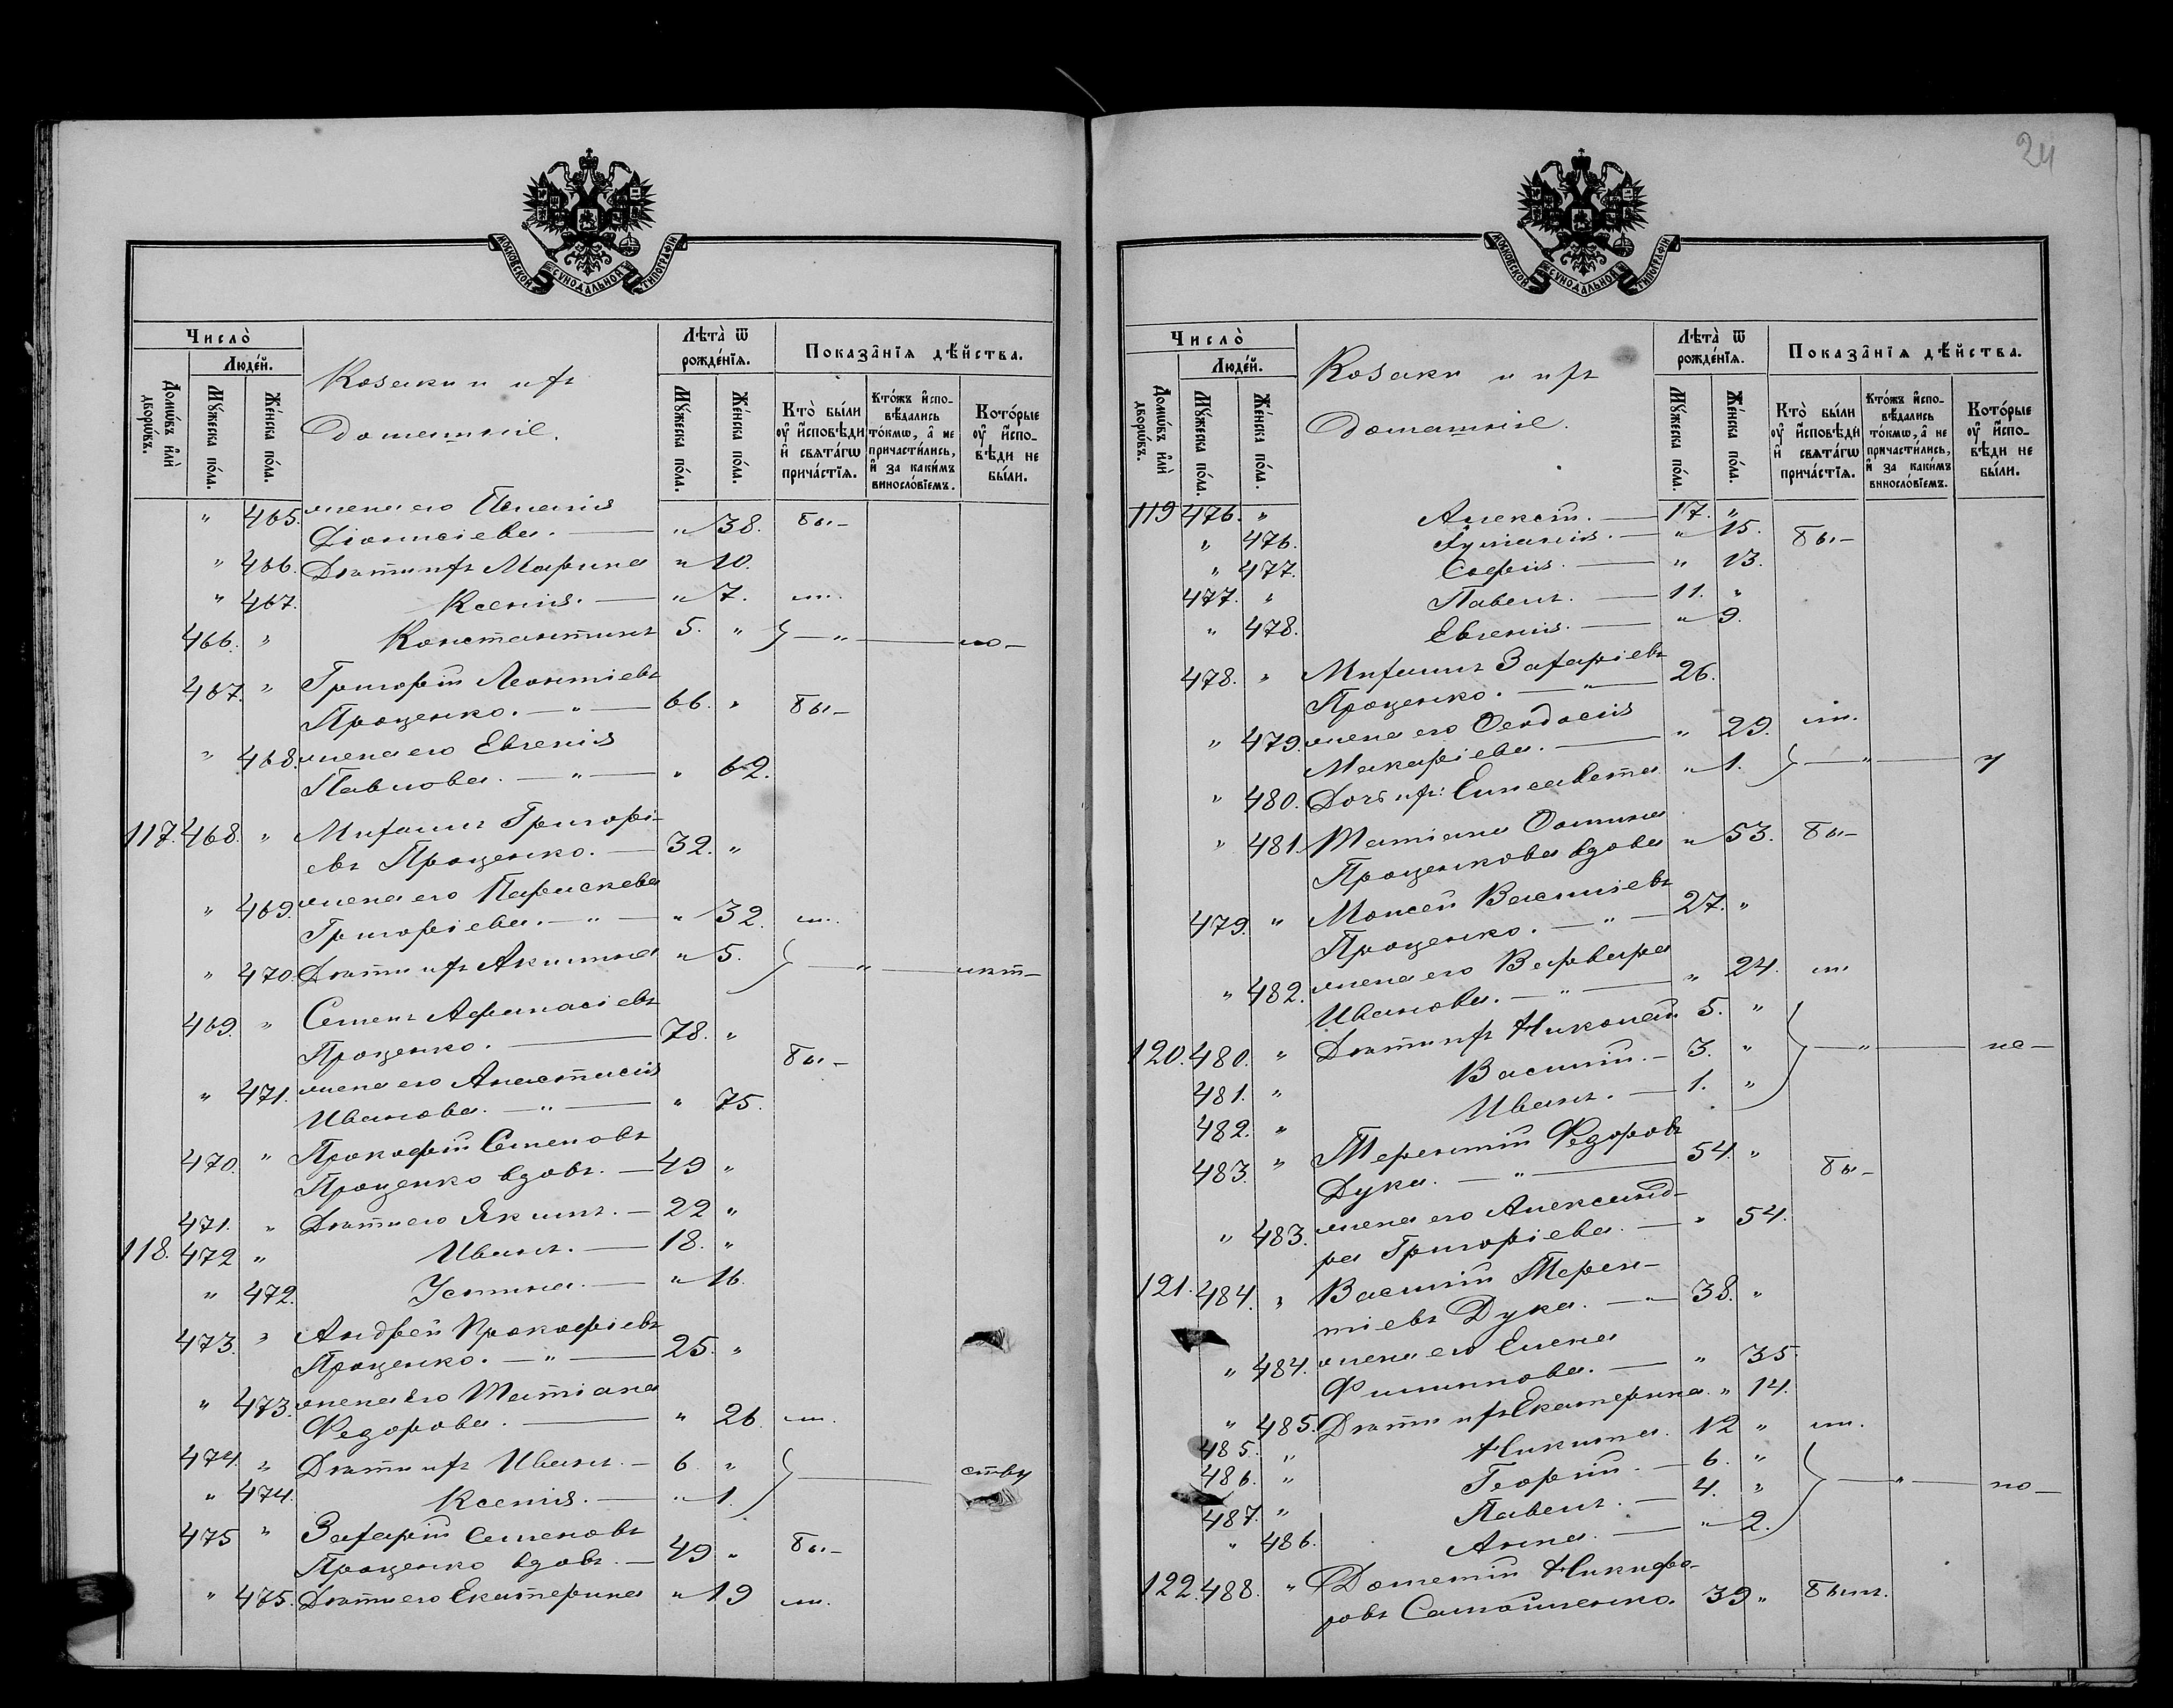 24
МОСКОВСКОЙ СѴНОДАЛЬНОЙ ТИПОГРАФІИ
Число̀
Людéй.
Домѡ́въ и҆лѝ дворѡ́въ.
Мꙋ́жеска по́ла.
Же́нска по́ла.
Козаки и ихъ
домашніе.
Лѣта̀ ѿ рожде́нїѧ.
Мꙋ́жеска по́ла.
Же́нска по́ла.
Показа̑нїѧ дѣ́йства.
Кто̀ бы́ли оу҆ и҆сповѣ́ди и҆ свѧта́гѡ прича́стїѧ.
Кто́жъ и҆спо-вѣ́дались то́кмѡ, а҆ не причасти́лись, и҆ за каки́мъ винослові́емъ.
Кото́рые оу҆ и҆спо-вѣ́ди не бы́ли.
" 465. жена его Пелагія
Діонисіева. — " 38. бы-
" 466. Дѣти ихъ Марина " 10.
" 467. Ксенія. — " 7. ли.
466. " Константинъ 5. " } — " — мо-
467. " Григорій Леонтіевъ
Проценко. — " — 66. " бы-
" 468. жена его Евгенія
Павлова. — " — " 62.
117. 468. " Михаилъ Григорі-
евъ Проценко. — 32. "
" 469. жена его Параскева
Григоріева. — " — " 32. ли.
" 470. Дѣти ихъ Акилина " 5. } — " — лѣт-
469. " Семенъ Афанасіевъ
Проценко. — 78. "
бы-
" 471. жена его Анастасія
Иванова. — " — " 75.
470. " Прокофій Семеновъ
Проценко вдовъ. — 49 "
471. " Дѣти его Якимъ. — 22 "
118. 472 " Иванъ. — 18. "
" 472. Устина. — " 16.
473. " Андрей Прокофіевъ
Проценко. — " — 25. "
" 473. жена его Татіана
Федорова. — " 26. ли.
474. " Дѣти ихъ Иванъ. — 6. " } — ству
" 474. Ксенія. — " 1.
475 " Захарій Семеновъ
Проценко вдовъ. — 49 " бы-
" 475. Дѣти его Екатерина " 19 ли.
МОСКОВСКОЙ СѴНОДАЛЬНОЙ ТИПОГРАФІИ
Число̀
Людéй.
Домѡ́въ и҆лѝ дворѡ́въ.
Мꙋ́жеска по́ла.
Же́нска по́ла.
Козаки и ихъ
домашніе.
Лѣта̀ ѿ рожде́нїѧ.
Мꙋ́жеска по́ла.
Же́нска по́ла.
Показа̑нїѧ дѣ́йства.
Кто̀ бы́ли оу҆ и҆сповѣ́ди и҆ свѧта́гѡ прича́стїѧ.
Кто́жъ и҆спо-вѣ́дались то́кмѡ, а҆ не причасти́лись, и҆ за каки́мъ винослові́емъ.
Кото́рые оу҆ и҆спо-вѣ́ди не бы́ли.
119 476. " Алексѣй. — 17. "
" 476. — " 15. бы-
" 477. Софія. — " 13.
477. " Павелъ. — 11. "
" 478. Евгенія. — " 9.
478. " Михаилъ Захаріевъ
Проценко. — " — 26.
" 479. жена его Феодосія
Макаріева. — " 29. ли.
" 480. Дочь ихъ: Елисавета " 1. } — " — у
" 481. Татіана Фомина
Проценкова вдова " 53. бы-
479. " Моисей Василіевъ
Проценко. — " — 27. "
" 482. жена его Варвара
Иванова. — " — " 24. ли
120. 480. " Дѣти ихъ Николай 5. "
481. " Василій. — 3. " } — " — не-
482. " Иванъ. — 1. "
483. " Терентій Федоровъ
Дука. — " — 54. " бы-
" 483. жена его Александ-
ра Григоріева. — " 54.
121. 484. " Василій Терен-
тіевъ Дука. — " 38. "
" 484. жена его Елена
Филиппова. — " 35.
" 485. Дѣти ихъ Екатерина. " 14.
485. " Никита. 12 " ли.
486. " Георгій. — 6. "
487. " Павелъ. — 4. " } — " — по-
" 486. Анна. — " 2.
122. 488. " Дометій Никифо-
ровъ Самойленко. 39 " былъ.